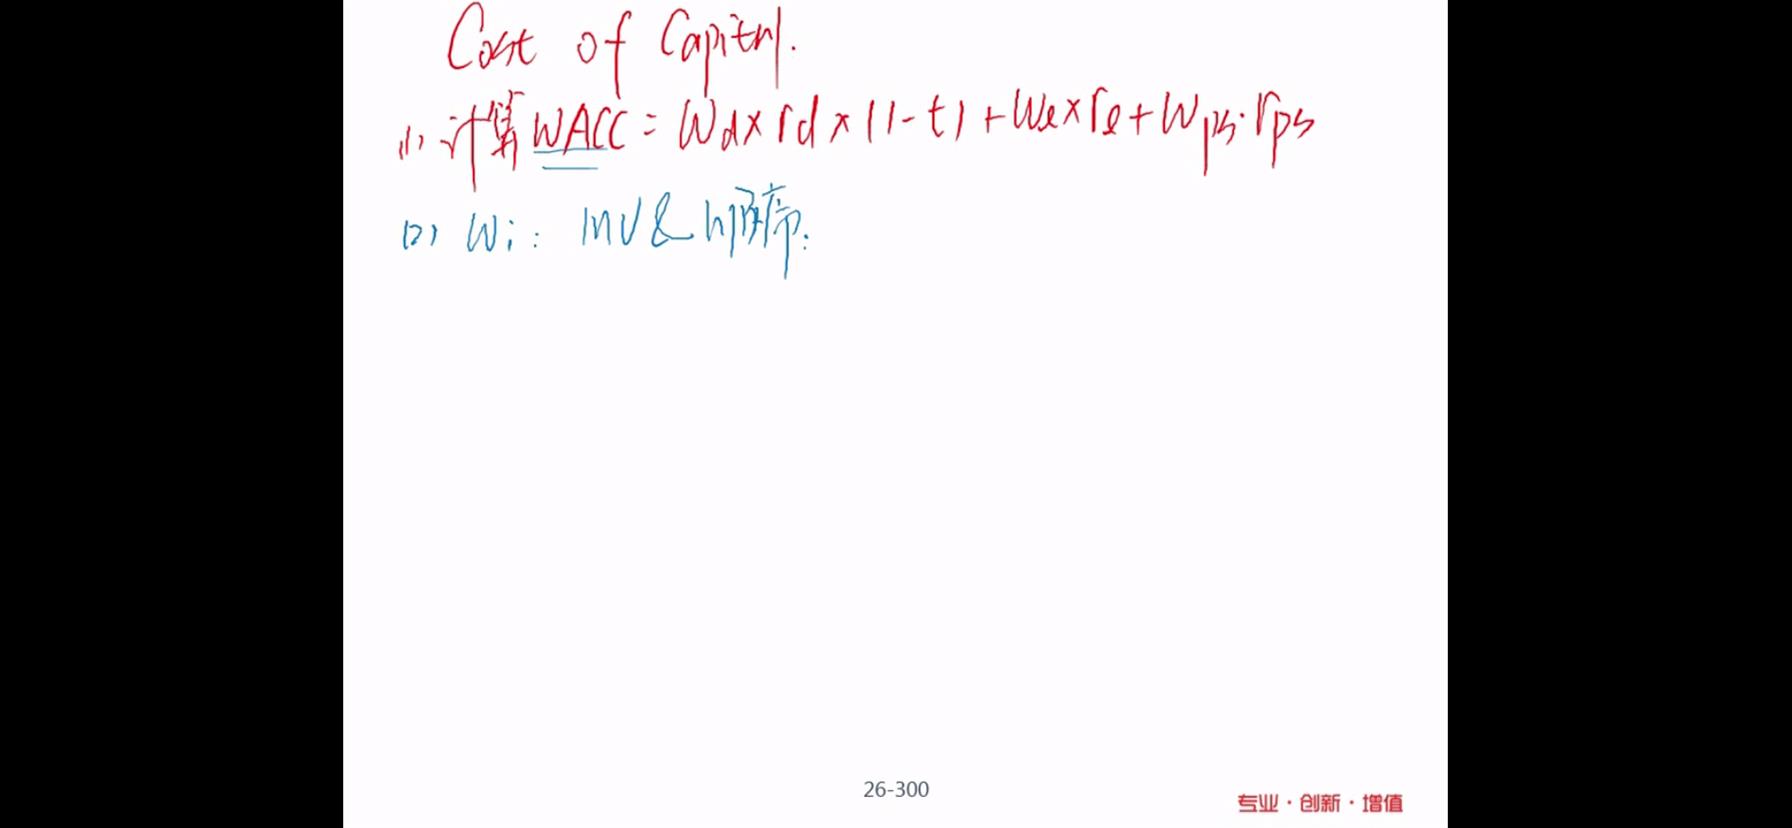 Cost of Capital.
(1) 计算 WACC = Wd × rd × (1-t) + We × re + Wps · rps
(2) Wi: MV &
26-300
专业·创新·增值